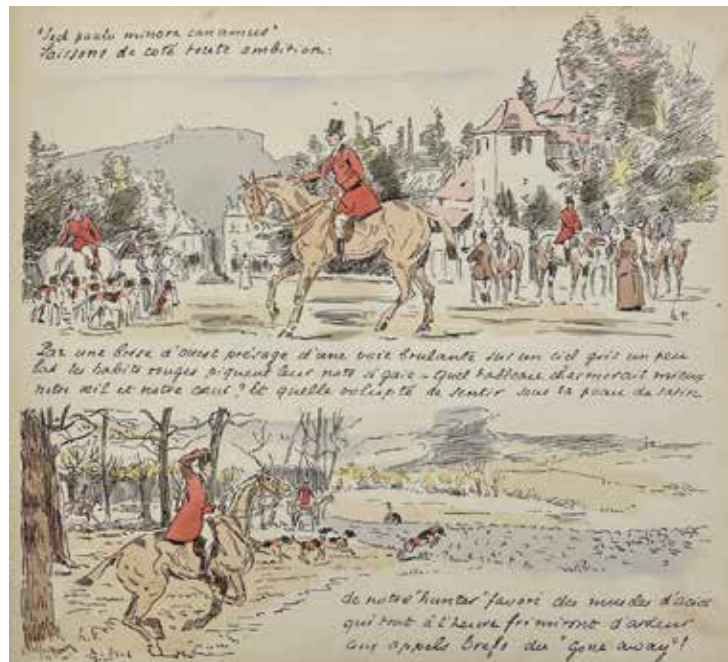 "Sed paulo minora canamus"
Laissons de coté toute ambition:
Par une brise d'ouest présage d'une voie brulante sur un ciel gris un peu
bas les habits rouges piquent leur note si gaie - quel tableau charmerait mieux
notre œil et notre cœur? Et quelle volupté de sentir sous la peau de satin
de notre "hunter" favori des muscles d'acier
qui tout à l'heure frémiront d'ardeur
aux appels brefs du "Gone away"!